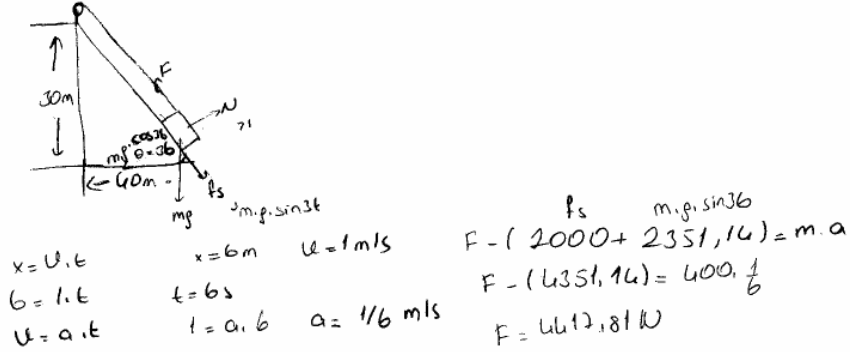 F
30m
N
cos36
mg θ=36
40m
fs
mg
m.g.sin36
x=U.t x=6m U=1m/s
6=1.t t=6s
U=a.t 1=a.6 a=1/6 m/s
fs m.g.sin36
F-(2000+2351,14)=m.a
F-(4351,14)=400.1/6
F=4417,81N